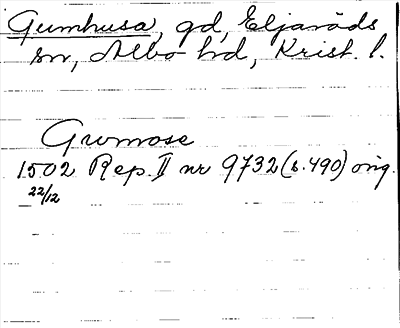 Gumhusa, gd, Eljaröds
sn, Albo hd, Krist. l.
Gwmose
1502 Rep. II nr 9732 (s. 490) orig.
22/12